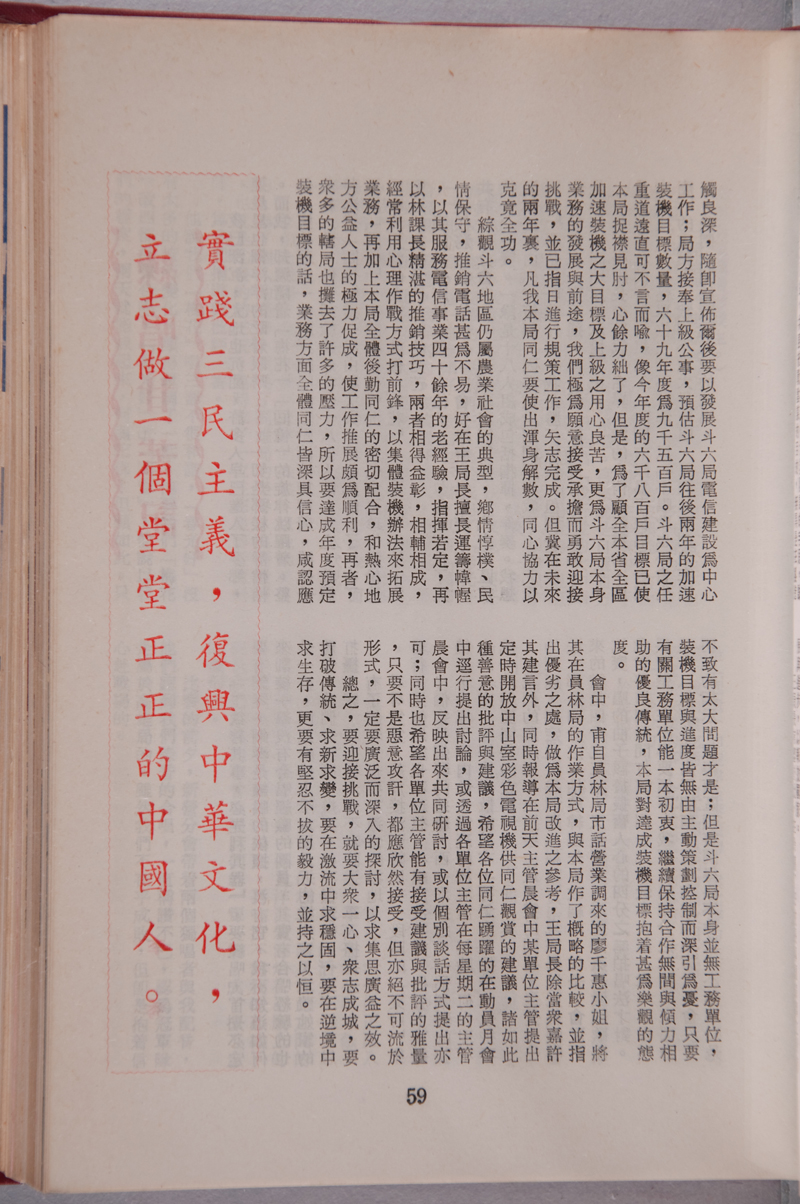 觸良深，隨即宣佈爾後要以發展斗六局電信建設爲中心
工作；局方接奉上級公事，預估斗六局往後兩年的加速
裝機目標數量，六十九年度爲九千五百戶。斗六局之任
重道遠直可不言而喩，像今年度的六千八百戶目標已使
本局捉襟見肘，心餘力絀了，但是，爲了顧全本省全區
加速裝機之大目標及上級之用心良苦，更爲斗六局本身
業務的發展與前途，我們極爲願意接受承擔而勇敢迎接
挑戰，並已指日進行規策工作，矢志完成。但冀在未來
的兩年裏，凡我本局同仁要使出渾身解數，同心協力以
克竟全功。
綜觀斗六地區仍屬農業社會的典型，鄉情惇樸、民
情保守，推銷電話甚爲不易，好在王局長擅長運籌幃幄
，以其服務電信事業四十餘年的老經驗，指揮若定，再
以林課長精湛的推銷技巧，兩者相得益彰，相輔相成，
經常利用心理作戰方式打前鋒，以集體裝機辦法來拓展
業務，再加上本局全體後勤同仁的密切配合，和熱心地
方公益人士的極力促成，使工作推展頗爲順利，再者，
衆多的轄局也攤去了許多的壓力，所以要達成年度預定
裝機目標的話，業務方面全體同仁皆深具信心，咸認應
不致有太大問題才是；但是斗六局本身並無工務單位，
裝機目標與進度皆無由主動策劃控制而深引爲憂，只要
有關工務單位能一本初衷，繼續保持合作無間與傾力相
助的優良傳統，本局對達成裝機目標抱着甚爲樂觀的態
度。
會中，甫自員林局市話營業調來的廖千惠小姐，將
其在員林局的作業方式，與本局作了概略的比較，並指
出優劣之處，做爲本局改進之參考，王局長除當衆嘉許
其建言外，同時報導在前天主管晨會中某單位主管提出
定時開放中山室彩色電視機供同仁觀賞的建議，諸如此
種善意的批評與建議，希望各位同仁踴躍的在動員月會
中逕行提出討論，或透過各單位主管在每星期二的主管
晨會中，反映出來共同研討，或以個別談話方式提出亦
可；同時也希望各單位主管能有接受建議與批評的雅量
，只要不是惡意攻訐，都應欣然接受，但亦絕不可流於
形式，一定要廣泛而深入的探討，以求集思廣益之效。
總之，要迎接挑戰，就要大衆一心、衆志成城，要
打破傳統、求新求變，要在激流中求穩固，要在逆境中
求生存，更要有堅忍不拔的毅力，並持之以恒。
實踐三民主義，復興中華文化，
立志做一個堂堂正正的中國人。
59